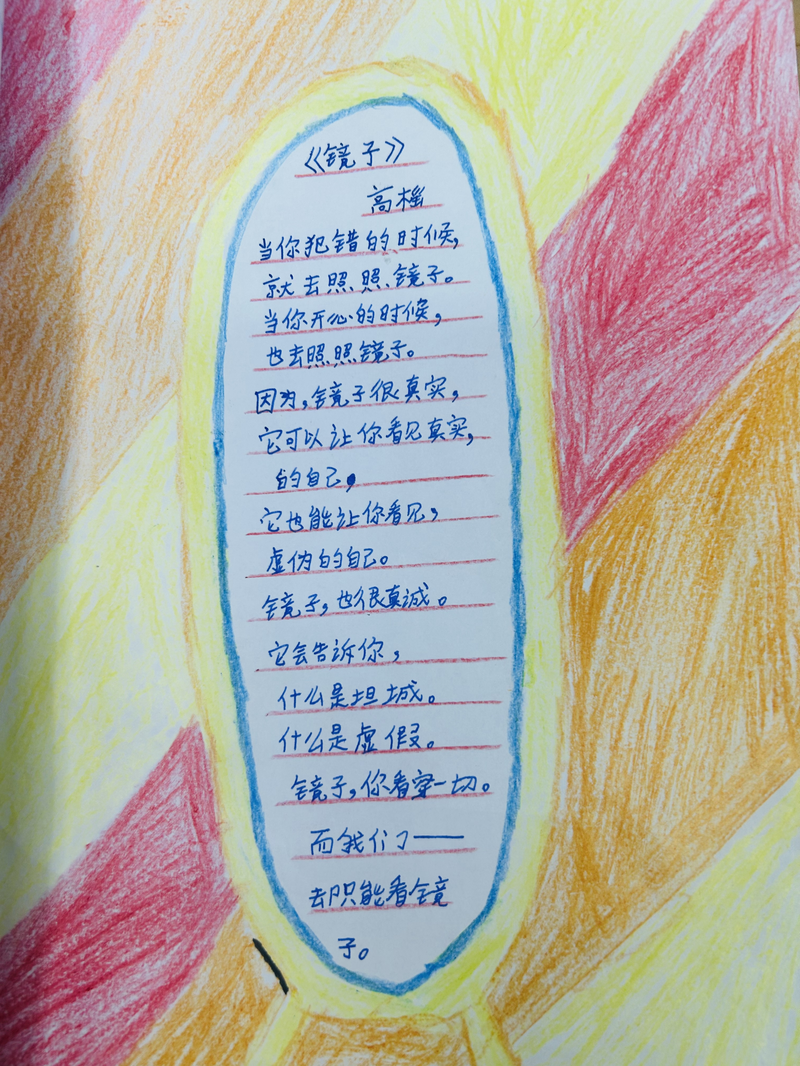 《镜子》
高榣
当你犯错的时候，
就去照照镜子。
当你开心的时候，
也去照照镜子。
因为，镜子很真实，
它可以让你看见真实，
的自己，
它也能让你看见，
虚伪的自己。
镜子，也很真诚。
它会告诉你，
什么是坦城。
什么是虚假。
镜子，你看穿一切。
而我们——
去只能看镜
子。